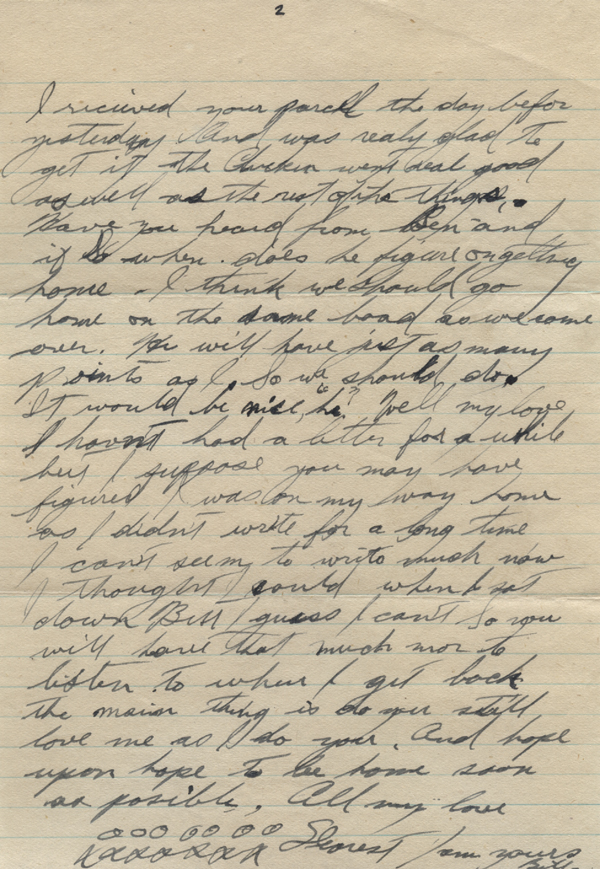 2
I recieved your parcel the day befor
yesterday And was realy glad to
get it the Chicken went real good
as well as the rest of the things.
Have you heard from Ben and
if so when. does he figure on getting
home - I think we should go
home on the same boad as we come
over. He will have just as many
points as I so we should do.
It would be nice, "he". Well my love
I havn't had a letter for a while
but I suppose you may have
figured I was on my way home
as I didn't write for a long time
I can't seem to write much now
I thought I could when I sat
down But I guess I can't So you
will have that much mor to
listen to when I get back
the maiin thing is do you still
love me as I do you. And hope
upon hope to be home soon
as posible. All my love
OOO OO OO Dearest I am yours
XXXXXXX Bill